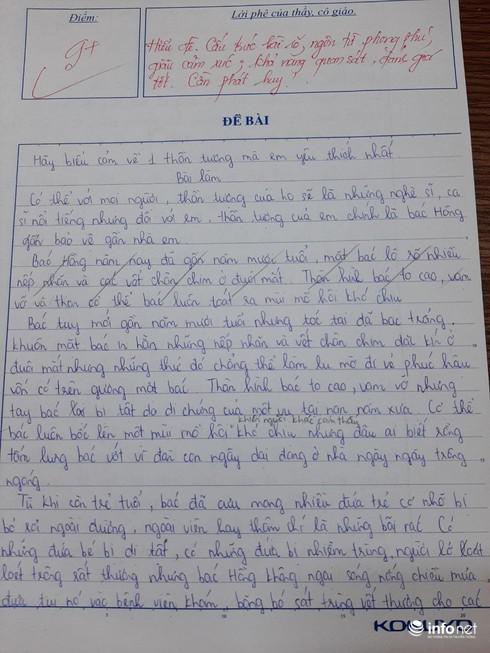 Điểm:
Lời phê của thầy, cô giáo.
9+
Hiểu đề. Cấu trúc bài rõ, ngôn từ phong phú,
giàu cảm xúc; khả năng quan sát, đánh giá
tốt. Cần phát huy!
ĐỀ BÀI
Hãy biểu cảm về 1 thần tượng mà em yêu thích nhất
Bài làm
Có thể với mọi người, thần tượng của họ sẽ là những nghệ sĩ, ca
sĩ nổi tiếng nhưng đối với em, thần tượng của em chính là bác Hồng
gần bảo vệ gần nhà em.
Bác Hồng năm nay đã gần năm mươi tuổi, mặt bác lộ rõ nhiều
nếp nhăn và các vết chân chim ở đuôi mắt. Thân hình bác to cao, vạm
vỡ và thân cơ thể bác luôn toát ra mùi mồ hôi khó chịu
Bác tuy mới gần năm mươi tuổi nhưng tóc tai đã bạc trắng,
khuôn mặt bác in hằn những nếp nhăn và vết chân chim dài kín ở
đuôi mắt nhưng những thứ đó chẳng thể làm lu mờ đi vẻ phúc hậu
vốn có trên gương mặt bác. Thân hình bác to cao, vạm vỡ nhưng
tay bác lại bị tật do di chứng của một vụ tai nạn năm xưa. Cơ thể
khiến người khác cảm thấy
bác luôn bốc lên một mùi mồ hôi khó chịu nhưng đâu ai biết rằng
tấm lưng bác vớt vì đàn con ngây dại đang ở nhà ngày ngày trông
ngóng.
Từ khi còn trẻ tuổi, bác đã cưu mang nhiều đứa trẻ cơ nhỡ bị
bỏ rơi ngoài đường, ngoài viện hay thậm chí là những bãi rác. Có
những đứa bé bị dị tật, có những đứa bị nhiễm trùng, người lở loét
loét trông rất thương nhưng bác Hồng không ngại sóng, nóng chiều mưa
đưa tụi nó vào bệnh viện khám, băng bó sát trùng vết thương cho các
KOKUYO
infonet